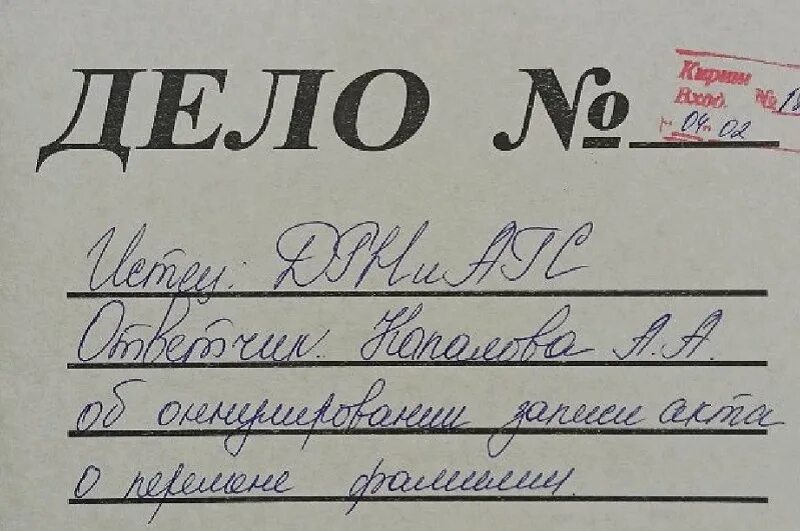 ДЕЛО №
Кирии
Вход. №
04 02
Истец: ДРНиАГС
Ответчик. Напалова А.А.
об аннулировании записи акта
о перемене фамилии.